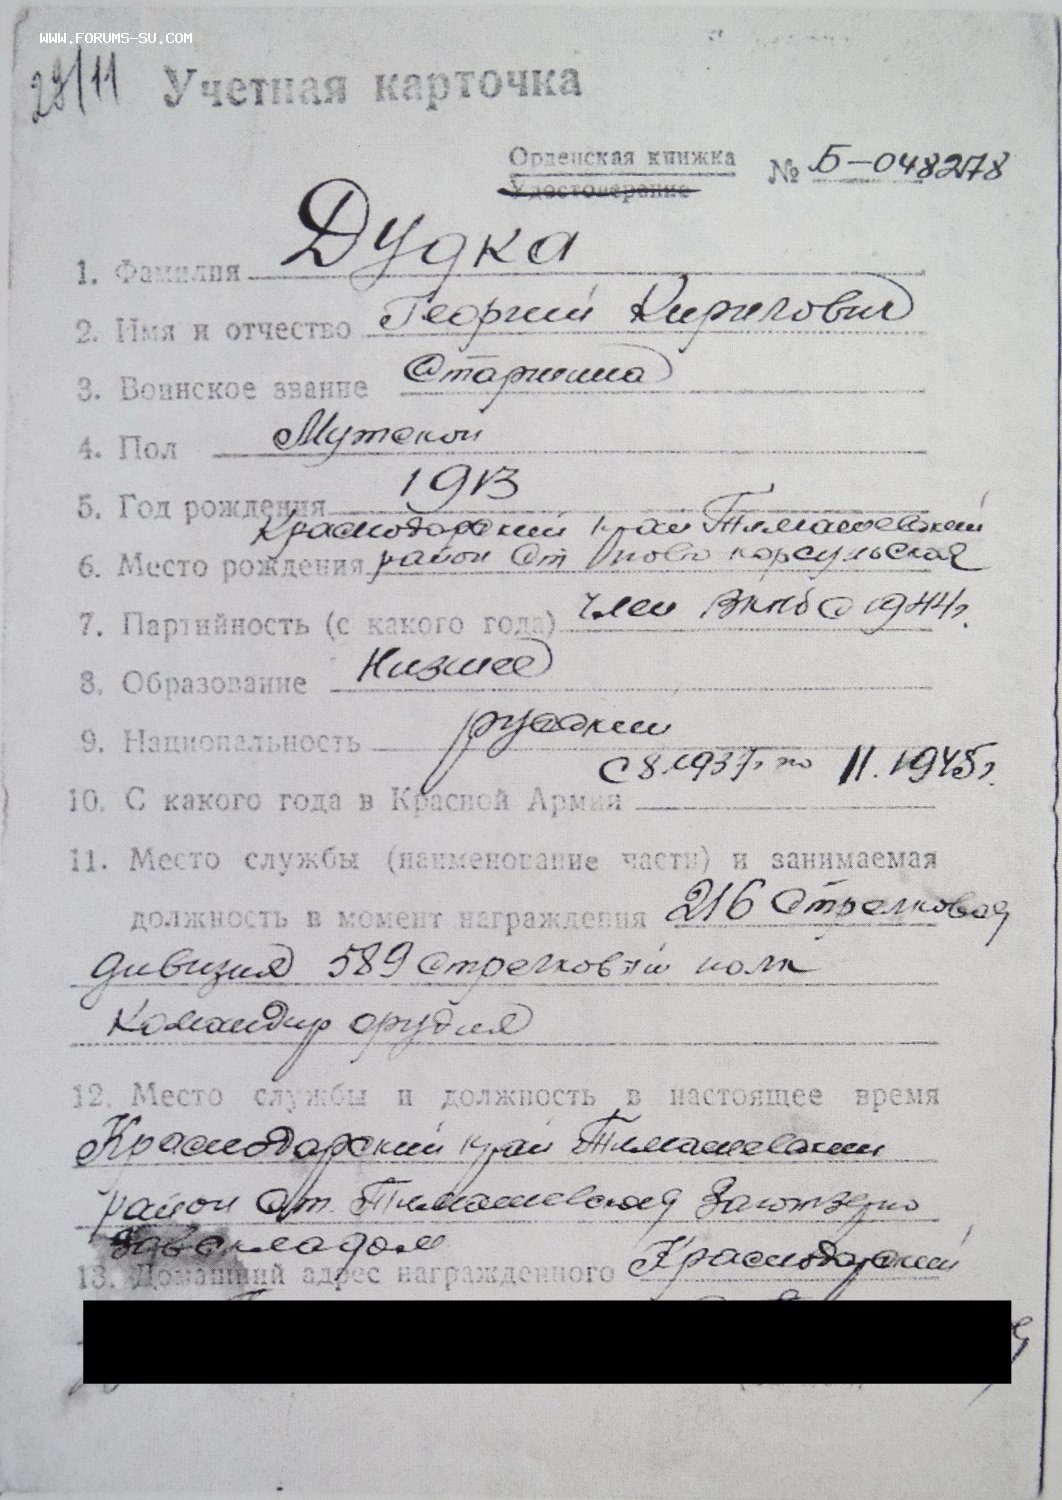 WWW.FORUMS-SU.COM
29/11
Учетная карточка
Орденская книжка № Б-048278
Удостоверение
1. Фамилия Дудка
2. Имя и отчество Георгий Кирилович
3. Воинское звание Старшина
4. Пол Мужской
5. Год рождения 1913
Краснодарский край Тимашевский
6. Место рождения район Ст Ново корсунская
7. Партийность (с какого года) член ВКПб с 1944г.
8. Образование Низшее
9. Национальность русский
с 8.1937г. по 11.1945г.
10. С какого года в Красной Армии
11. Место службы (наименование части) и занимаемая
должность в момент награждения 216 Стрелковая
дивизия 589 стрелковый полк
командир орудия
12. Место службы и должность в настоящее время
Краснодарский край Тимашевский
район ст. Тимашевская Заготзерно
Зав складом
13. Домашний адрес награжденного Краснодарский